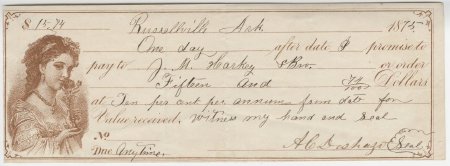 $ 15.74 Russellville Ark. 1875
One day after date I promise to
pay to J. M. Harkey & Bro. or order
Fifteen and 74/100 Dollars
at Ten per cent per annum from date for
Value received, witness my hand and seal
No
Due Anytime. A C Seal